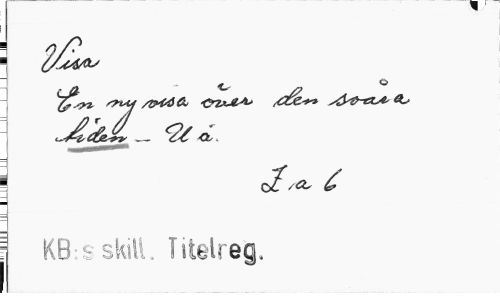 Visa
En ny visa över den svåra
tiden – U å.
Z a 6
KB:s skill. Titelreg.